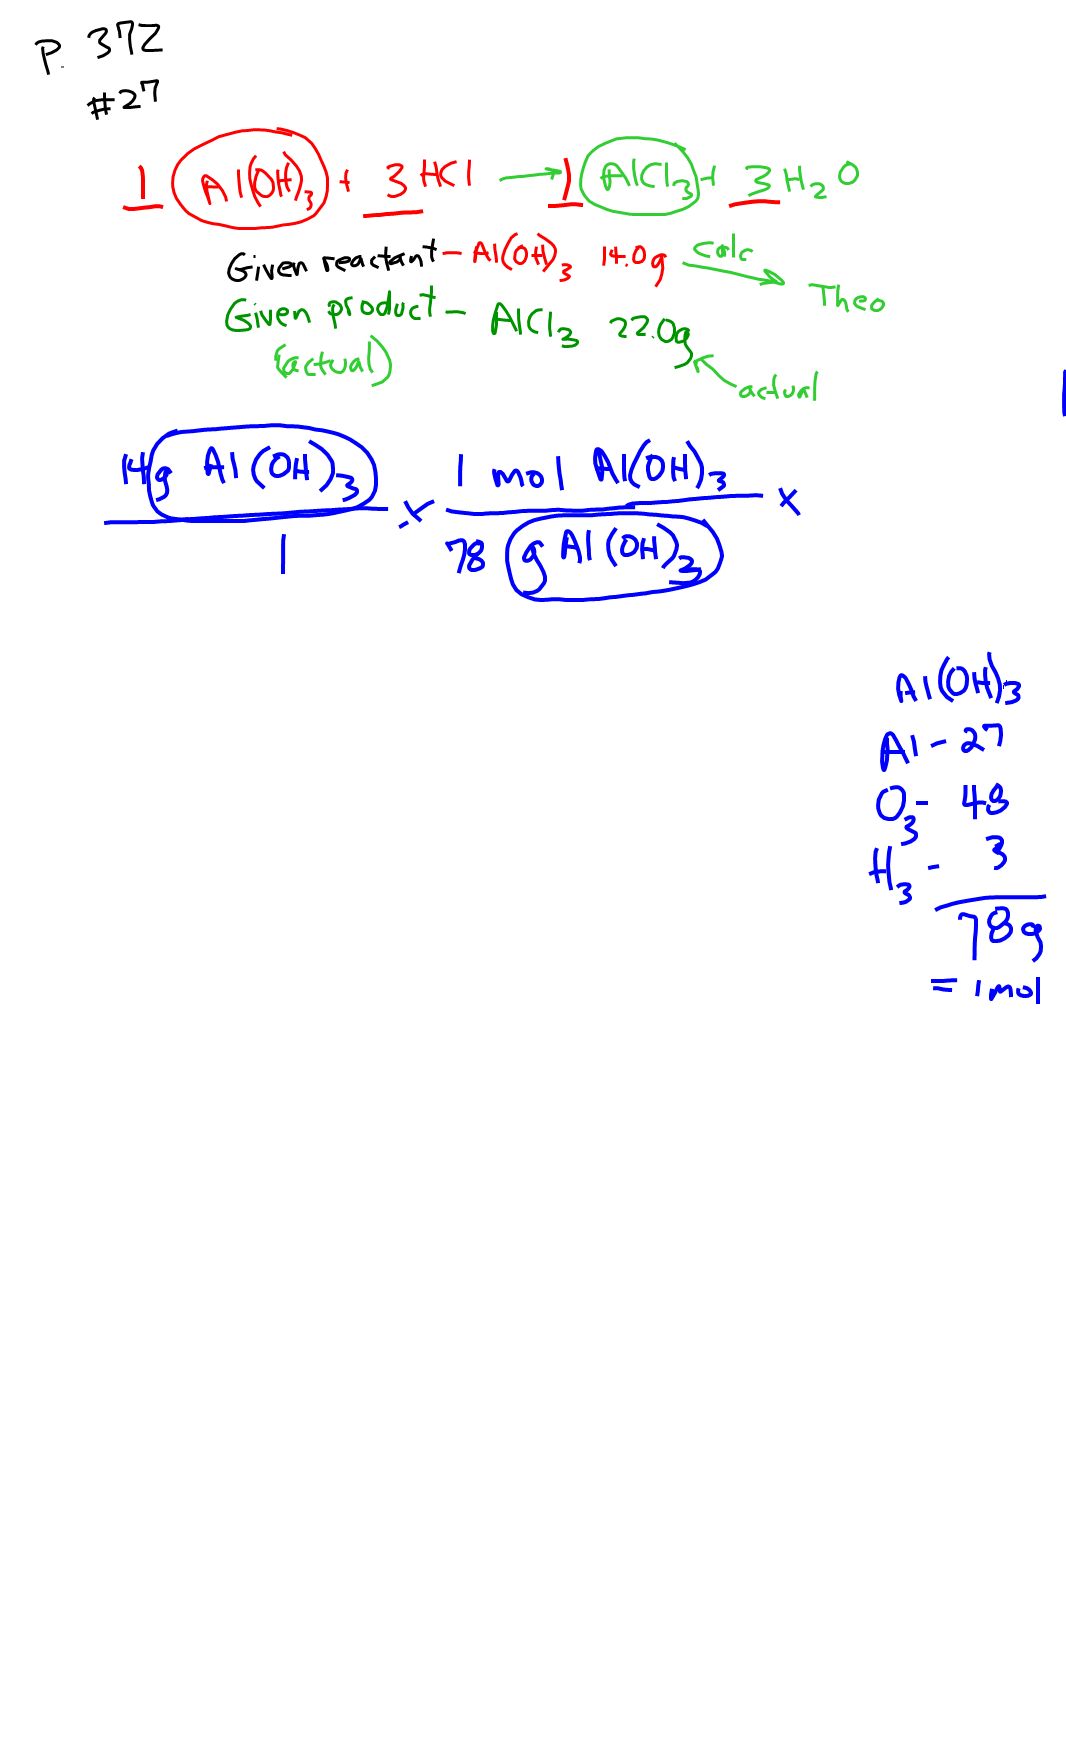 P. 372
#27
1 Al(OH)₃ + 3 HCl → 1 AlCl₃ + 3 H₂O
Given reactant - Al(OH)₃ 14.0g calc → Theo
Given product - AlCl₃ 22.0g
(actual) actual
14g Al(OH)₃ × 1 mol Al(OH)₃ ×
1 78 g Al(OH)₃
Al(OH)₃
Al - 27
O₃ - 48
H₃ - 3
78g
= 1 mol